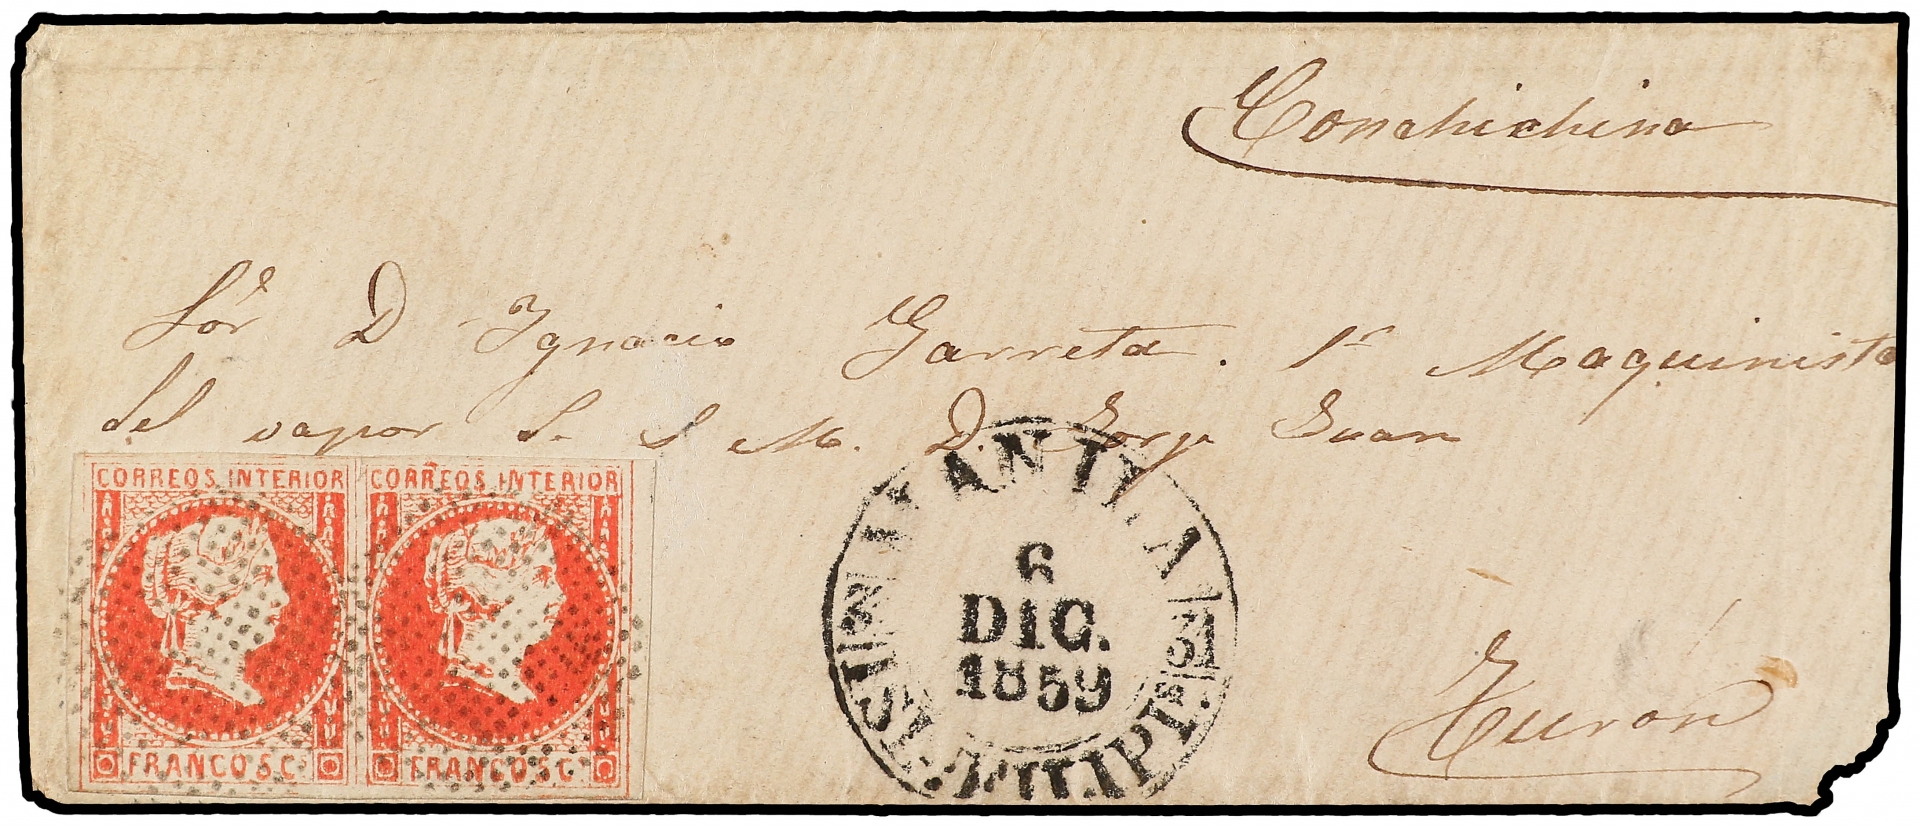 Conchichina
Sor D Ignacio Garreta. 1r Maquinista
del vapor de S M. D. Jorge Juan
CORREOS INTERIOR
FRANCO 5 C.
CORREOS INTERIOR
FRANCO 5 C.
MANILA
6
DIC.
1859
ISLAS FILIPI.
Turón